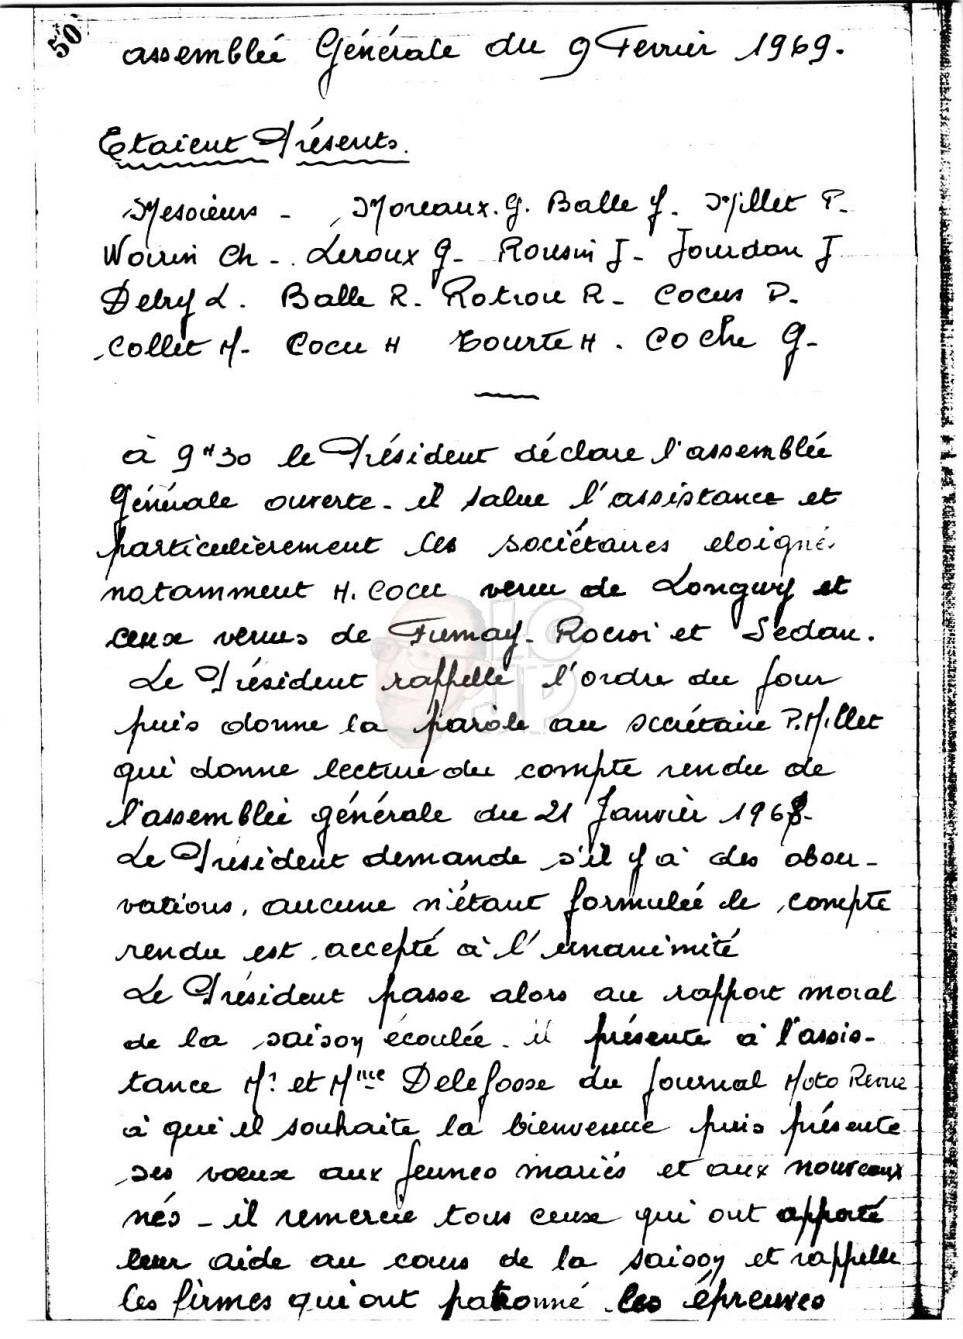 50
assemblée Générale du 9 Fevrier 1969.
Etaient Présents.
Messieurs - Moreaux. G. Balle J. Millet P.
Woirin Ch - Leroux G - Rousin J - Jourdan J
Detry L. Balle R. Rotrou R - Cocus D.
Collet M - Cocu H Tourte H. Coche G -
à 9H30 le Président déclare l'assemblée
générale ouverte - il salue l'assistance et
particulièrement les sociétaires eloignés
notamment H. Cocu venu de Longwy et
ceux venus de Fumay - Rocroi et Sedan.
Le Président rappelle l'ordre du jour
puis donne la parole au secrétaire P. Millet
qui donne lecture du compte rendu de
l'assemblée générale du 21 Janvier 1968.
Le Président demande s'il y a des obser-
vations, aucune n'étant formulée le compte
rendu est accepté à l'unanimité
Le Président passe alors au rapport moral
de la saison écoulée - il présente à l'assis-
tance Mr et Mme Delefosse du journal Moto Revue
à qui il souhaite la bienvenue puis présente
ses voeux aux jeunes mariés et aux nouveaux
nés - il remercie tous ceux qui ont apporté
leur aide au cours de la saison et rappelle
les firmes qui ont patronné les épreuves